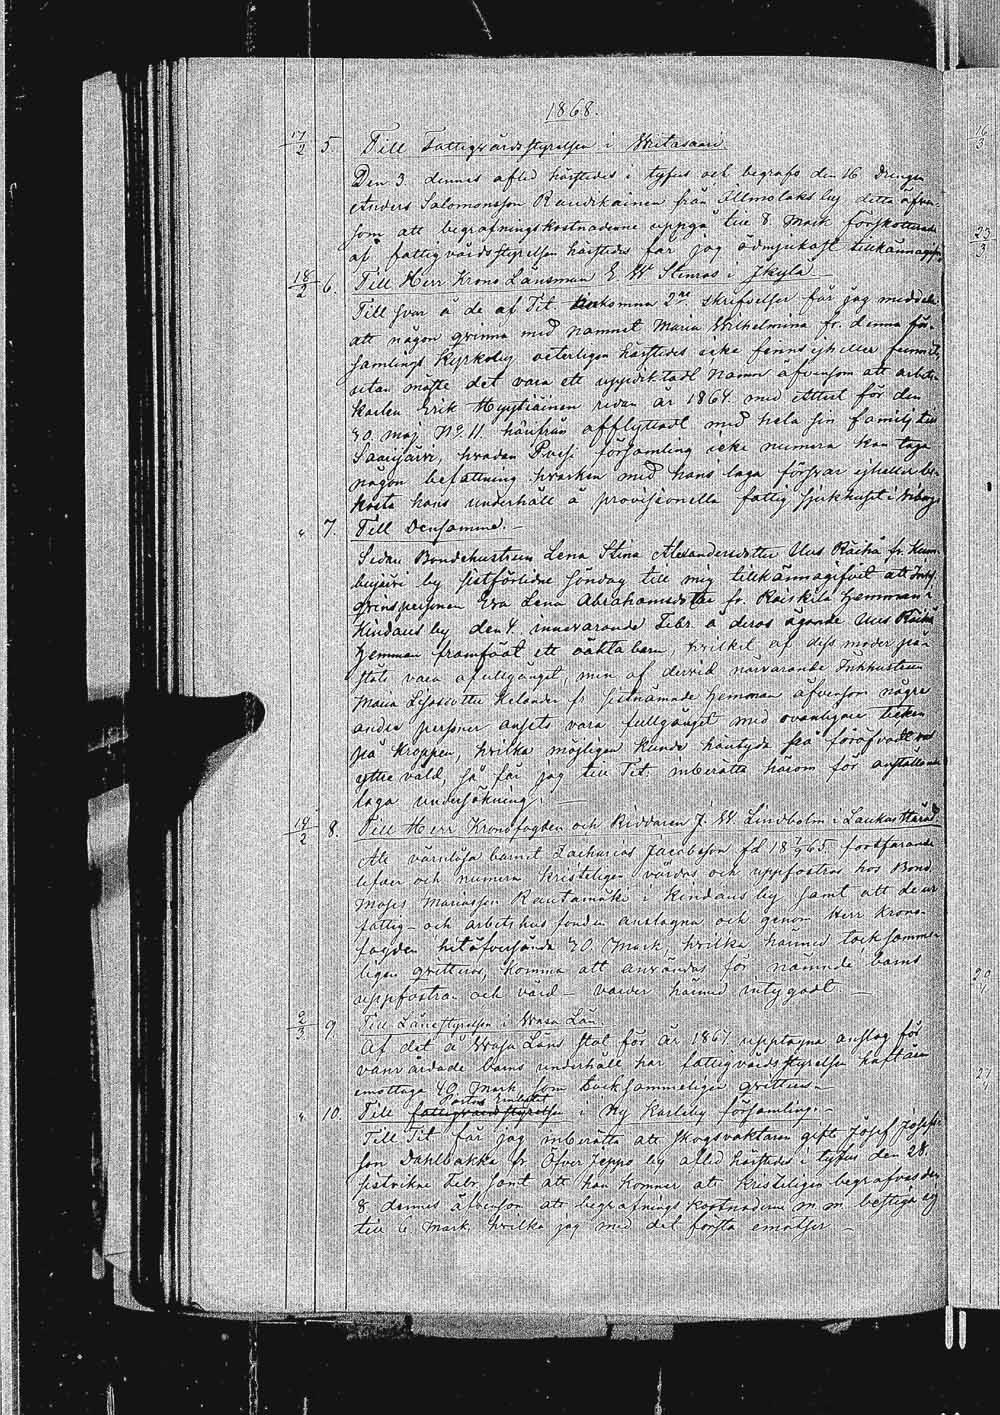 1868.
17/2 5. Till Fattigvårdsstyrelsen i Wiitasaari
Den 3. dennes afled härstedes i tyfus och begrafs den 16 Drengen
Anders Salomonsson Raudikainen från Ellmolaks by detta äfven-
som att begrafningskostnaderne uppgå till 8. Mark förskotterade
af fattigvårdsstyrelsen härstedes får jag ödmjukast tillkännagifva
18/2 6. Till Herr Krono Länsman E. W. Stenroos i Jkylä
Till svar å de af Tit ankomna 2ne skrifvelser får jag meddela
att någon qvinna med namnet Maria Wilhelmina fr. denna för-
samlings Kyrkoby veterligen härstedes icke finns ejheller funnits
utan måste det vara ett uppdiktadt namn äfvensom att arbets-
karlen Erik Hyytiäinen redan år 1864. med Attest för den
30. maj No. 11. härifrån afflyttadt med hela sin familj till
Saarijärvi, hvadan församling icke numera kan taga
någon befattning hvarken med hans laga försvar ejheller be-
kosta hans underhåll å provisionella fattig sjukhuset i Wiborg
" 7. Till Densamme. —
Sedan Bondehustrun Lena Stina Alexandersdotter Uus Räihä fr. Kum-
bujärvi by sistförlidne söndag till mig tillkännagifvit att Inhys
qvinspersonen Eva Lena Abrahamsdotter fr. Raiskila Hemman i
Kindaus by den 4. innevarande Febr. å deras ägande Uus Räihä
Hemman framfödt ett oäkta barn, hvilket af dess moder på-
stås vara ofullgånget, men af dervid närvarande Inhyshustrun
Maria Lisasdotter Kelander fr sistnämnde Hemman äfvensom några
andra personer ansets vara fullgånget med ovanligare tecken
på kroppen, hvilka möjligen kunde häntyda på föröfvadt
yttre våld, så får jag till Tit. inberätta härom för anställande
laga undersökning. —
19/2 8. Till Herr Kronofogden och Riddaren J. W. Lindholm i Laukas Härad.
Att värnlösa barnet Zacharias Jacobsson fd 18 65 fortfarande
lefver och numera kristeligen vårdas och uppfostras hos Bond.
Moses Mariasson Rautamäki i Kindaus by samt att de ur
fattig- och arbetshus fonden anslagna och genom Herr Krono-
fogden hitöfversände 70 Mark, hvilka härmed tacksamme-
ligen qvitteras, komma att användas för nämnde barns
uppfostran och vård — varder härmed intygadt —
2/3 9. Till Länestyrelsen i Wasa Län
Af det å Wasa Läns stat för år 1867 upptagna anslag för
vanvårdade barns underhåll har fattigvårdsstyrelsen haft äran
emottaga 40 Mark, som tacksammeligen qvitteras —
" 10. Till fattigvårdsstyrelsen Pastors Embetet i Ny Karleby församling. —
Till Tit får jag inberätta att skogsvaktaren gifte Josef Josefs-
son Dahlbakka fr Öfver Jeppo by afled härstedes i tyfus den 28.
sistvikne Febr. samt att han kommer att kristeligen begrafvas den
8. dennes äfvensom att begrafnings kostnaderne m. m. bestiga sig
till 6. Mark, hvilka jag med det första emotser —
16/3
23/3